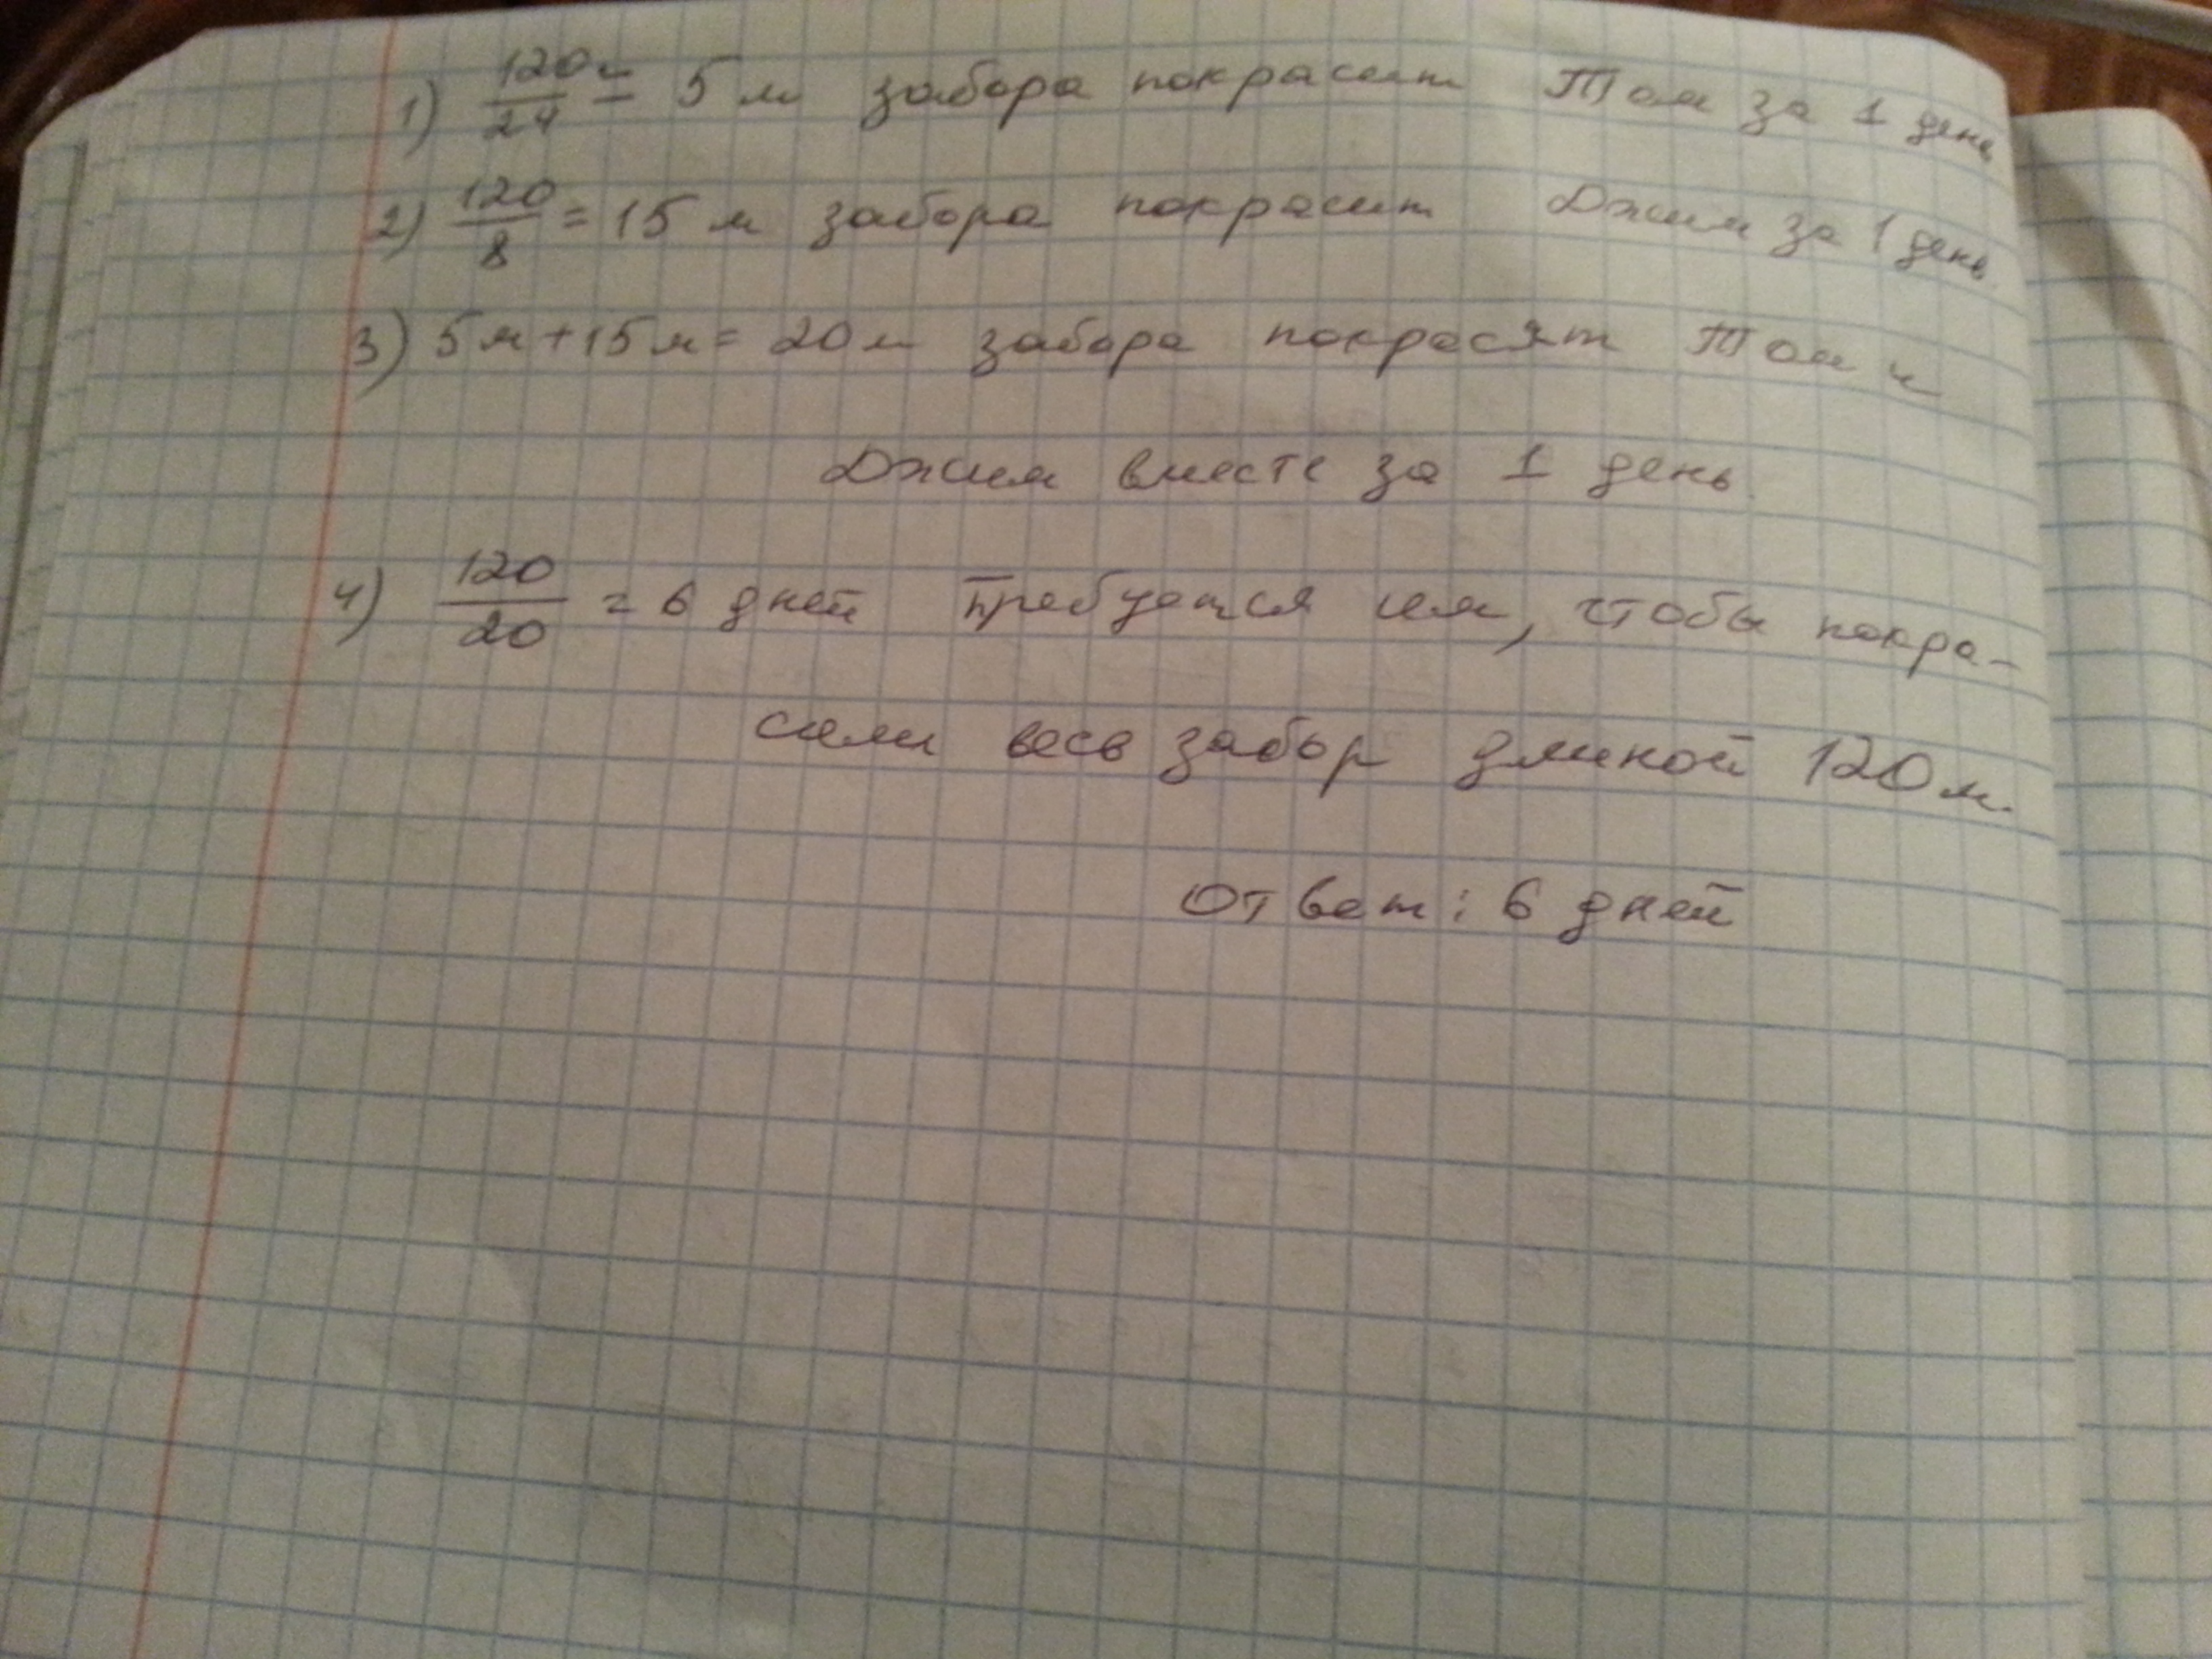 1) 120м/24 = 5 м забора покрасит Том за 1 день
2) 120/8 = 15 м забора покрасит Джим за 1 день
3) 5м+15м= 20м забора покрасят Том и
Джим вместе за 1 день.
4) 120/20 = 6 дней требуется им, чтобы покра-
сили весь забор длиной 120м.
Ответ: 6 дней